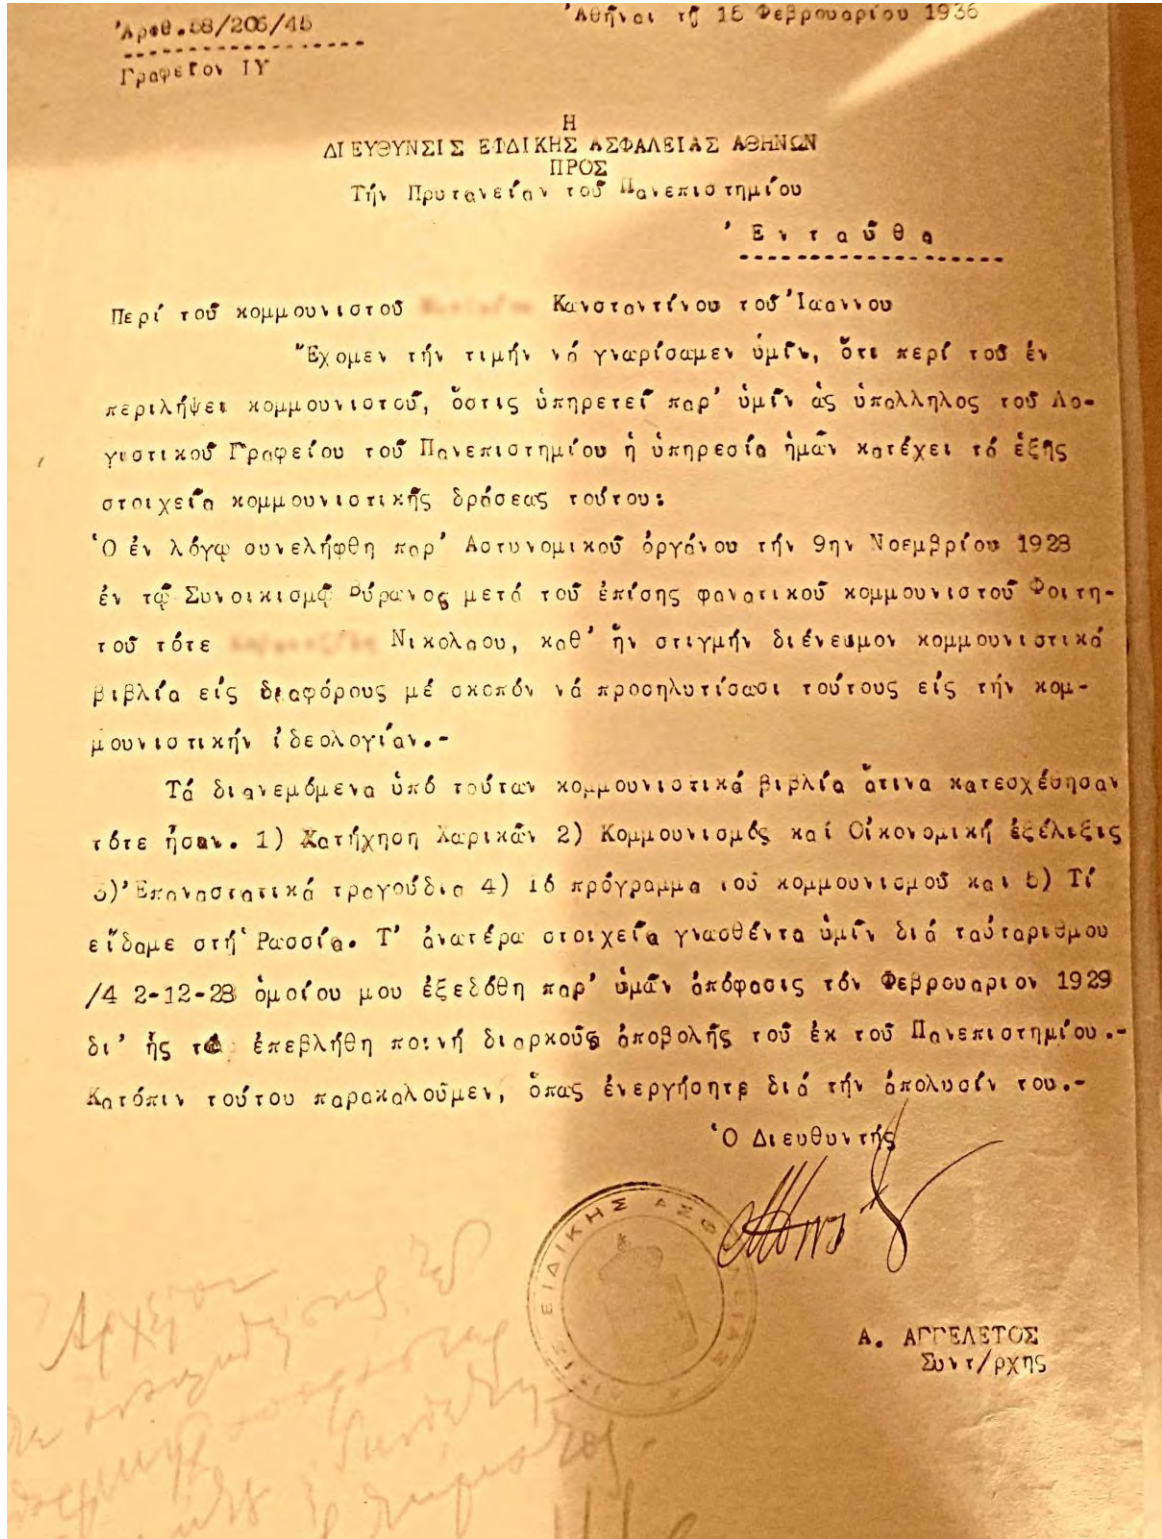 Ἀριθ.58/206/45
Ἀθῆναι τῇ 15 Φεβρουαρίου 1936
Γραφεῖον ΙΥ
Η
ΔΙΕΥΘΥΝΣΙΣ ΕΙΔΙΚΗΣ ΑΣΦΑΛΕΙΑΣ ΑΘΗΝΩΝ
ΠΡΟΣ
Τήν Πρυτανείαν τοῦ Πανεπιστημίου
Ἐνταῦθα
Περί τοῦ κομμουνιστοῦ Κωνσταντίνου τοῦ Ἰωάννου
Ἔχομεν τήν τιμήν νά γνωρίσωμεν ὑμῖν, ὅτι περί τοῦ ἐν
περιλήψει κομμουνιστοῦ, ὅστις ὑπηρετεῖ παρ' ὑμῖν ὡς ὑπάλληλος τοῦ Λο-
γιστικοῦ Γραφείου τοῦ Πανεπιστημίου ἡ ὑπηρεσία ἡμῶν κατέχει τά ἑξῆς
στοιχεῖα κομμουνιστικῆς δράσεως τούτου:
Ὁ ἐν λόγῳ συνελήφθη παρ' Αστυνομικοῦ ὀργάνου τήν 9ην Νοεμβρίου 1928
ἐν τῷ Συνοικισμῷ Βύρωνος μετά τοῦ ἐπίσης φανατικοῦ κομμουνιστοῦ Φοιτη-
τοῦ τότε Νικολάου, καθ' ἥν στιγμήν διένειμον κομμουνιστικά
βιβλία εἰς διαφόρους μέ σκοπόν νά προσηλυτίσωσι τούτους εἰς τήν κομ-
μουνιστικήν ἰδεολογίαν.-
Τά διανεμόμενα ὑπό τούτων κομμουνιστικά βιβλία ἅτινα κατεσχέθησαν
τότε ἦσαν. 1) Κατήχηση Χωρικῶν 2) Κομμουνισμός καί Οἰκονομική ἐξέλιξις
3) Ἐπαναστατικά τραγούδια 4) 16 πρόγραμμα τοῦ κομμουνισμοῦ και 5) Τί
εἴδαμε στή Ρωσσία. Τ' ἀνωτέρω στοιχεῖα γνωσθέντα ὑμῖν διά ταὐταρίθμου
/4 2-12-28 ὁμοίου μου ἐξεδόθη παρ' ὑμῶν ἀπόφασις τόν Φεβρουαριον 1929
δι' ἧς τῷ ἐπεβλήθη ποινή διαρκοῦς ἀποβολῆς τοῦ ἐκ τοῦ Πανεπιστημίου.-
Κατόπιν τούτου παρακαλοῦμεν, ὅπως ἐνεργήσητε διά τήν ἀπόλυσίν του.-
Ὁ Διευθυντής
ΕΙΔΙΚΗΣ ΑΣΦΑΛΕΙΑΣ
Α. ΑΓΓΕΛΕΤΟΣ
Συντ/ρχης
Αρχεῖον